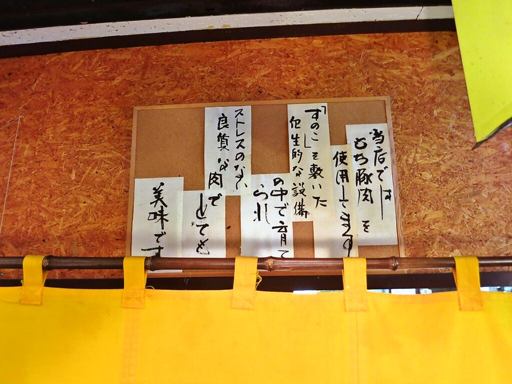 当店です
もち豚肉を
使用してまの
「すのこ」を敷いた
衛生的な設備
の中で育て
られ
ストレスのない
良質な肉で
とても
美味です